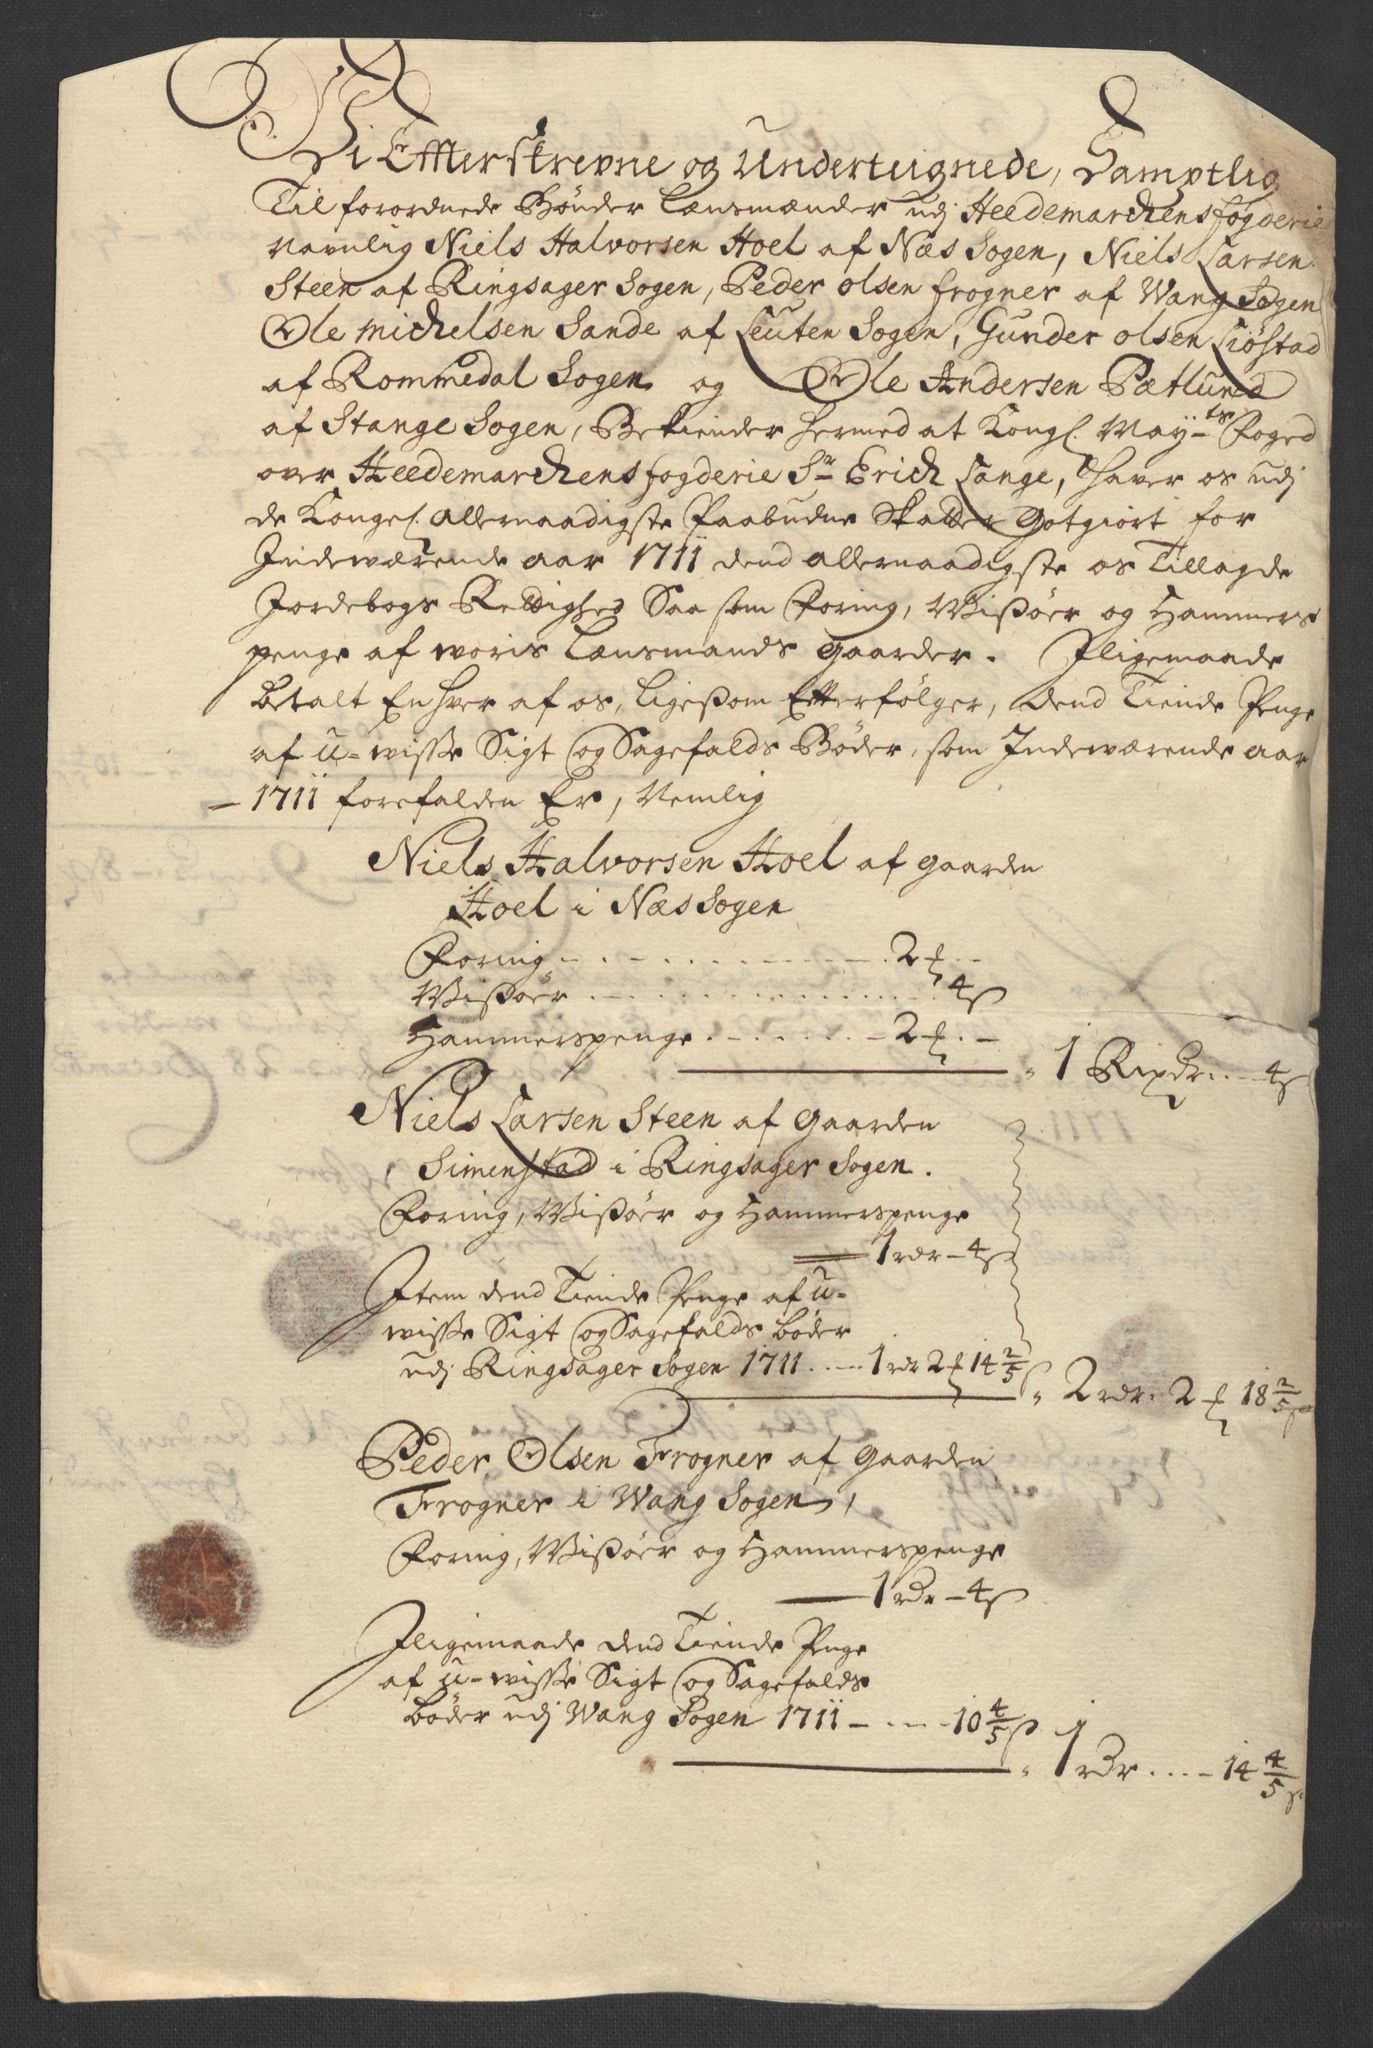 Vi Efterskrevne og Underteignede, Samptlig
Tilforordnede Bønder Lænsmænder udj Heedemarckens fogderie
Navnlig Niels Halvorsen Hoel af Næs Sogen, Niels Larsen
Steen af Ringsager Sogen, Peder Olsen frogner af Wang Sogen
Ole Michelsen Sande af Leuten Sogen, Gunder Olsen Liøstad
af Rommedal Sogen og Ole Andersen Pætlund
af Stange Sogen, Bekiender hermed at Kongl. May-ts Foged
over Heedemarckens fogderie Sr Erich Lange, haver os udj
de Kongel. Allernaadigste Paabudne Skatter Gotgiort for
Indeværende aar 1711 dend allernaadigste os Tillagde
Jordebogs Rettighed Saa som Foring, Wißøer og Hammers
penge af woris Lænsmands gaarder. Iligemaade
betalt Enhver af os, ligesom Efterfølger, Dend Tiende Penge
af u-wisse Sigt og Sagefalds Bøder, som Indeværende aar
1711 forefalden Er, Nemlig
Niels Halvorsen Hoel af gaarden
Hoel i Næs Sogen
Foring 2 ℔
Wißøer 4 ß
Hammerspenge 2 ℔
1 Rixdr 4 ß
Niels Larsen Steen af Gaarden
Simenstad i Ringsager Sogen.
Foring, Wißøer og Hammerspenge
1 rdr - 4 ß
Item dend Tiende Penge af u-
wisse Sigt og Sagefalds bøder
udj Ringsager Sogen 1711 1 rdr 2 ℔ 14 2/5 ß
2 rdr. 2 ℔ 18 2/5 ß
Peder Olsen Frogner af Gaarden
Frogner i Wang Sogen,
Foring, Wißøer og Hammerspenge
1 rdr - 4 ß
Iligemaade dend Tiende Penge
af u-wisse Sigt og Sagefalds
bøder udj Wang Sogen 1711 10 4/5 ß
1 rdr 14 4/5 ß